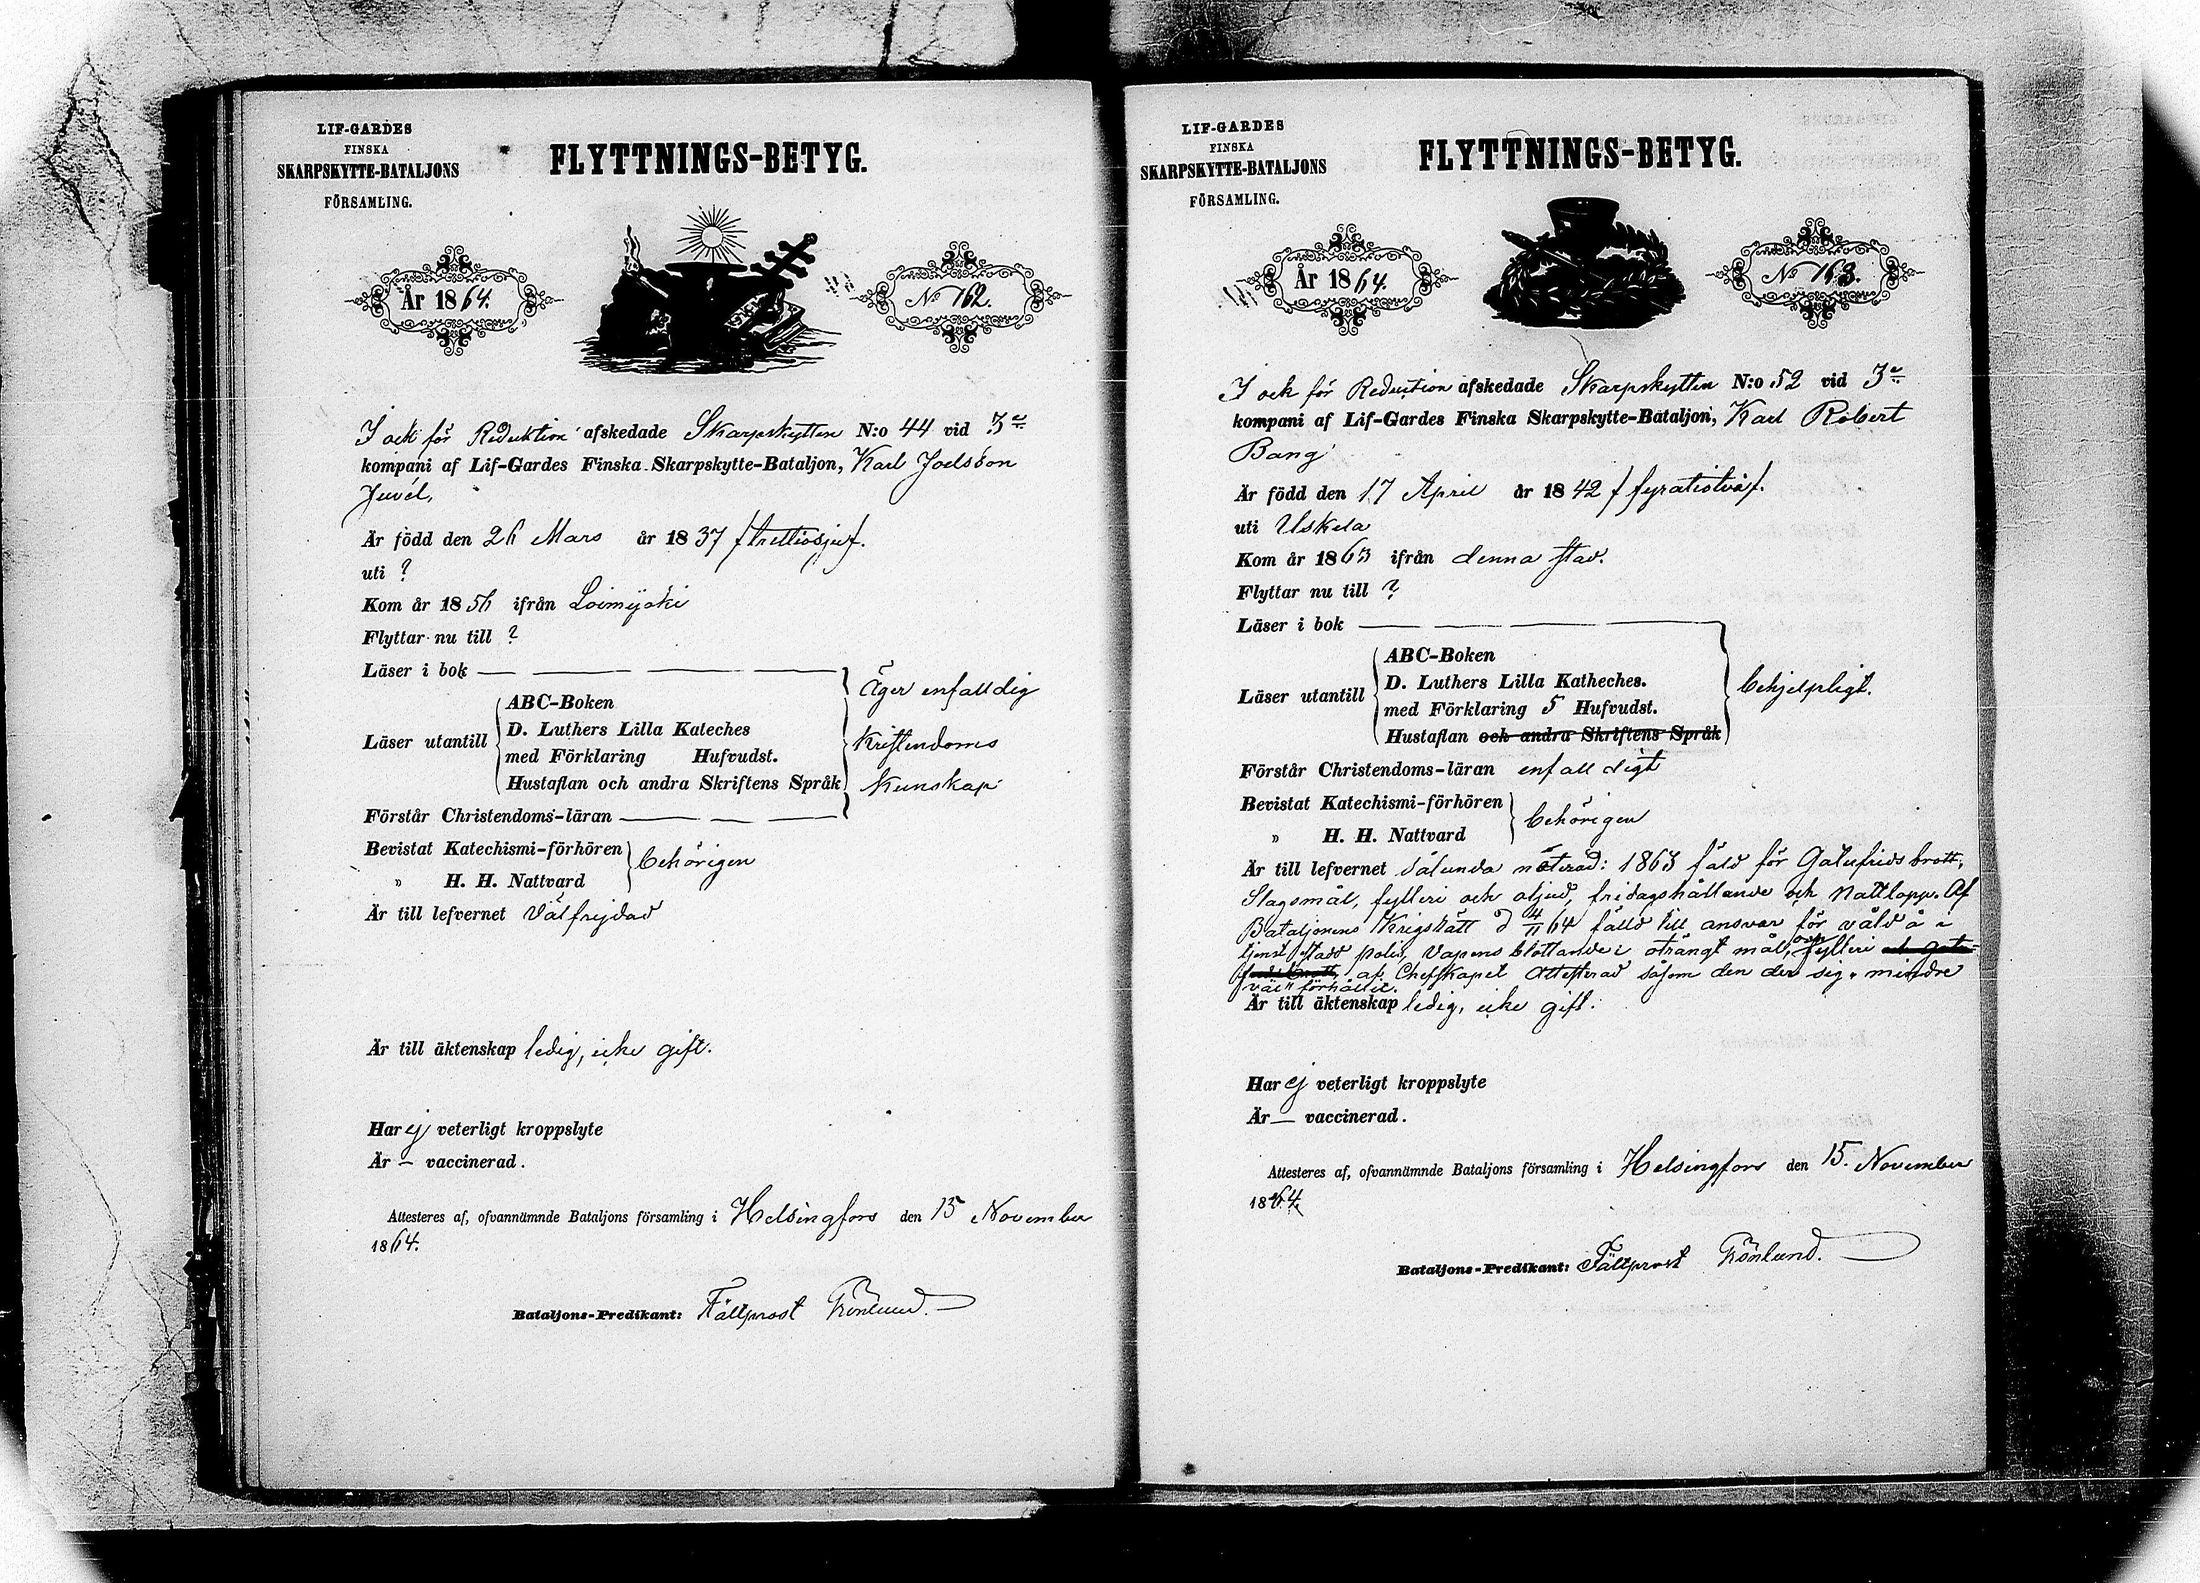 LIF-GARDES
FINSKA
SKARPSKYTTE-BATALJONS
FÖRSAMLING.
FLYTTNINGS-BETYG.
År 1864.
No 162.
I och för Reduktion afskedade Skarpskytten N:o 44 vid 3e
kompani af Lif-Gardes Finska Skarpskytte-Bataljon, Karl Joelsson
Juvél,
Är född den 26 Mars år 1837 /trettiosju/.
uti ?
Kom år 1856 ifrån Loimijoki
Flyttar nu till ?
Läser i bok
Äger enfalldig
ABC-Boken
D. Luthers Lilla Kateches
Läser utantill
Kristendoms
med Förklaring Hufvudst.
Hustaflan och andra Skriftens Språk
Kunskap
Förstår Christendoms-läran
Bevistat Katechismi-förhören
behörigen
" H. H. Nattvard
Är till lefvernet Välfrejdad
Är till äktenskap ledig, icke gift.
Har ej veterligt kroppslyte
Är — vaccinerad.
Attesteres af, ofvannämnde Bataljons församling i Helsingfors den 15 November
1864.
Bataljons-Predikant: Fältprost Grönlund.
LIF-GARDES
FINSKA
SKARPSKYTTE-BATALJONS
FÖRSAMLING.
FLYTTNINGS-BETYG.
År 1864.
No 163.
I och för Reduction afskedade Skarpskytten N:o 52 vid 3e
kompani af Lif-Gardes Finska Skarpskytte-Bataljon, Karl Robert
Bang
Är född den 17 April år 1842 /fyratiotvå/.
uti Uskela
Kom år 1863 ifrån denna stad.
Flyttar nu till ?
Läser i bok
ABC-Boken
D. Luthers Lilla Katheches.
Läser utantill
behjelpligt.
med Förklaring 5 Hufvudst.
Hustaflan och andra Skriftens Språk
Förstår Christendoms-läran enfalldigt
Bevistat Katechismi-förhören
behörigen
" H. H. Nattvard
Är till lefvernet sålunda noterad: 1863 fäld för Gatufridsbrott,
Slagsmål, fylleri och oljud, fridagshållande och Nattlopp. Af
Bataljonens Krigsrätt d 4/11 64 fälld till ansvar för våld å i
tjenst stadd polis, vapens blottande i oträngt mål, och fylleri
af Chefskapet attesterad såsom den der sig "mindre
väl" förhållit.
Är till äktenskap ledig, icke gift.
Har ej veterligt kroppslyte
Är — vaccinerad.
Attesteres af, ofvannämnde Bataljons församling i Helsingfors den 15. November
1864.
Bataljons-Predikant: Fältprost Grönlund.